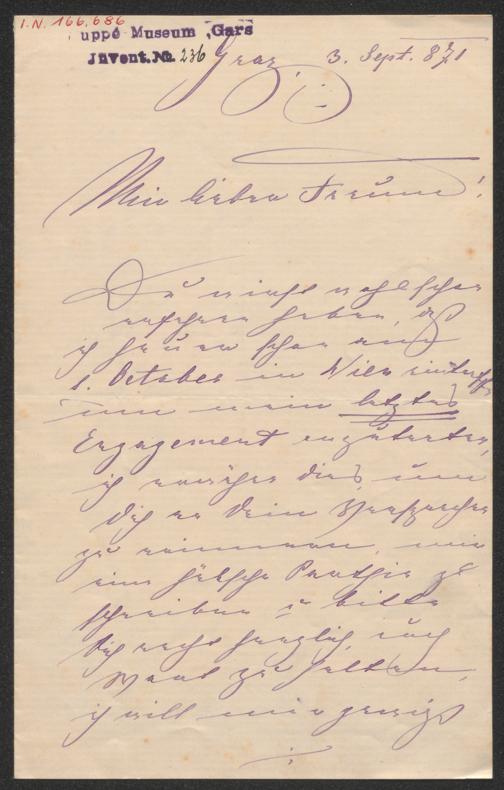 I.N. 166,686
uppé Museum, Gars
Invent. No. 236
Graz 3. Sept. 871
Mein lieber Freund!
Du wirst wohl schon
erfahren haben, daß
ich heuer schon am
1. October in Wien eintreffe
um mein letztes
Engagement anzutreten,
ich erwähne dies, um
Dich an Dein Versprechen
zu erinnern, mir
eine hübsche Parthie zu
schreiben u bitte
Dich recht herzlich, auch
Wort zu halten,
ich will mir gewiß